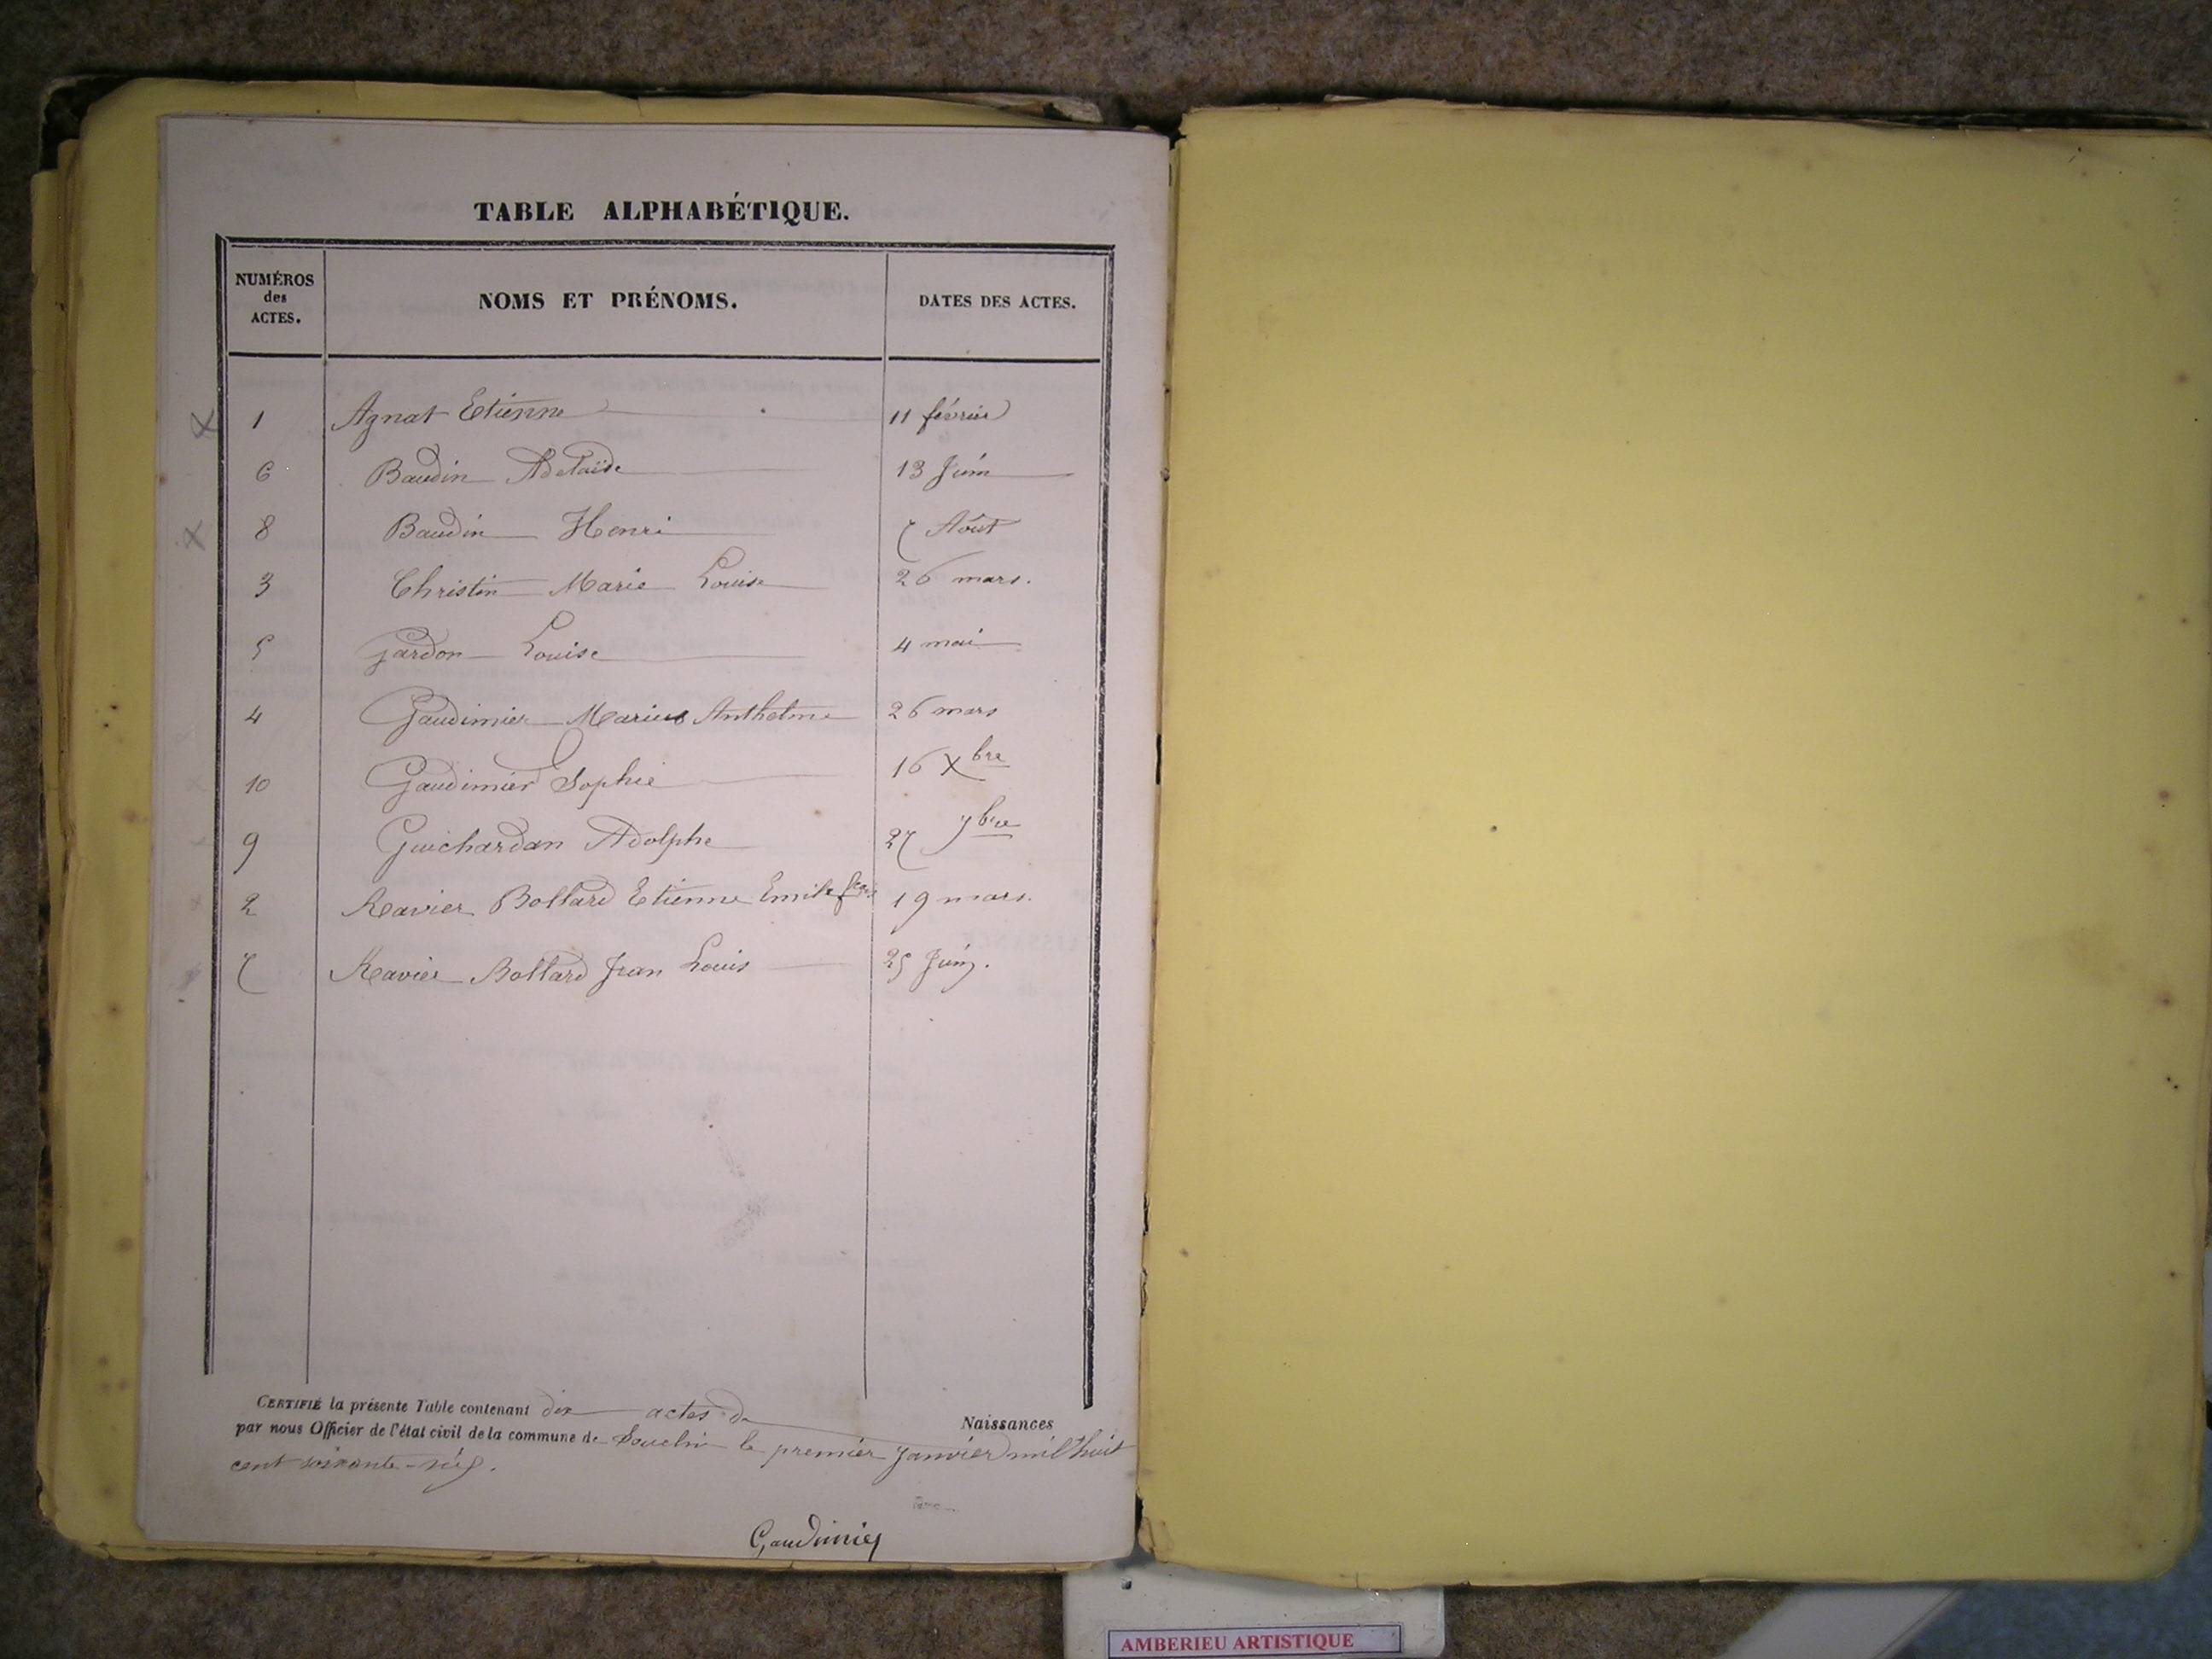 TABLE ALPHABÉTIQUE.
NUMÉROS des ACTES. NOMS ET PRÉNOMS. DATES DES ACTES.
1 Agnat Etienne 11 février
6 Baudin Adelaïde 13 Juin
8 Baudin Henri 7 Août
3 Christin Marie Louise 26 mars.
5 Gardon Louise 4 mai
4 Gaudimier Marius Anthelme 26 mars
10 Gaudimier Sophie 16 Xbre
9 Guichardan Adolphe 27 7bre
2 Ravier Bollard Etienne Emile 19 mars.
7 Ravier Bollard Jean Louis 25 Juin.
CERTIFIÉ la présente Table contenant dix actes de Naissances
par nous Officier de l'état civil de la commune de Souclin le premier Janvier mil huit
cent soixante-
Gaudimier
AMBERIEU ARTISTIQUE